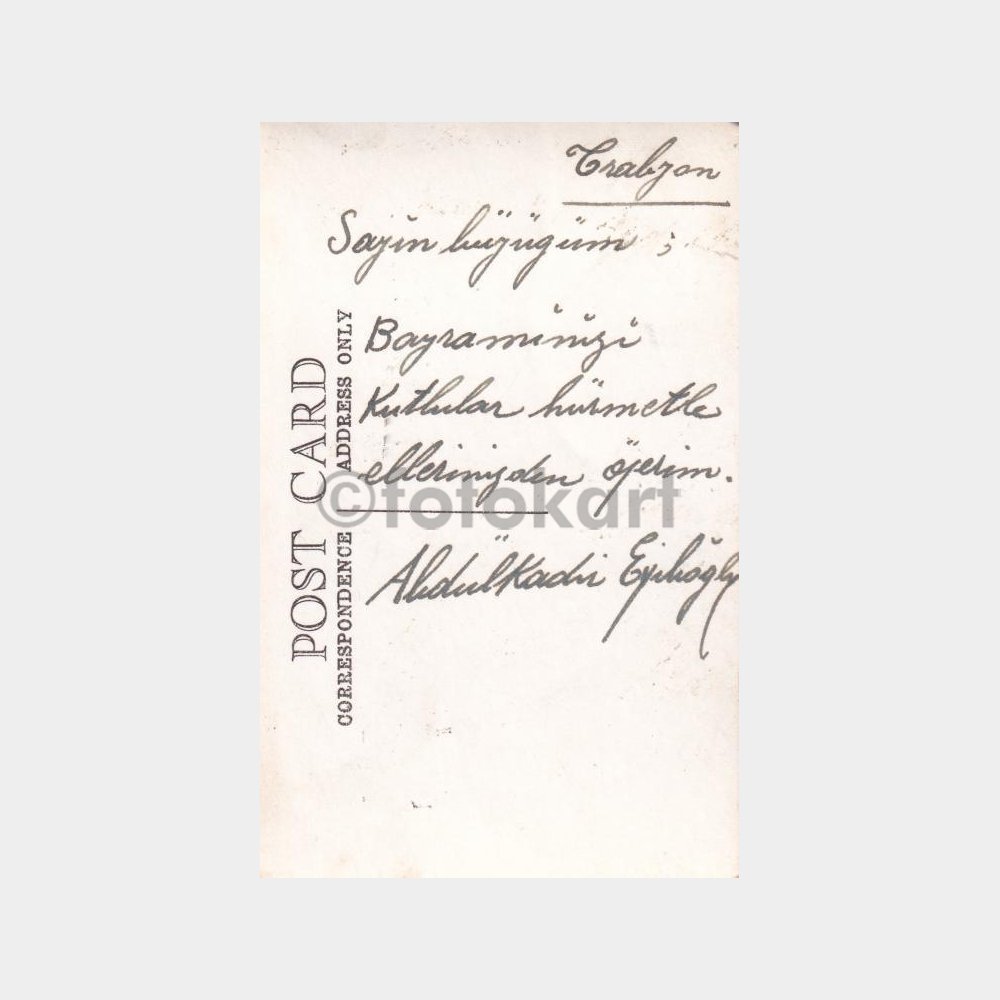 Trabzon
Sayin büyügüm ;
Bayraminizi
Kutlular hürmetle
ellerinizden öperim.
Abdülkadir
POST CARD
CORRESPONDENCE ADDRESS ONLY
©fotokart